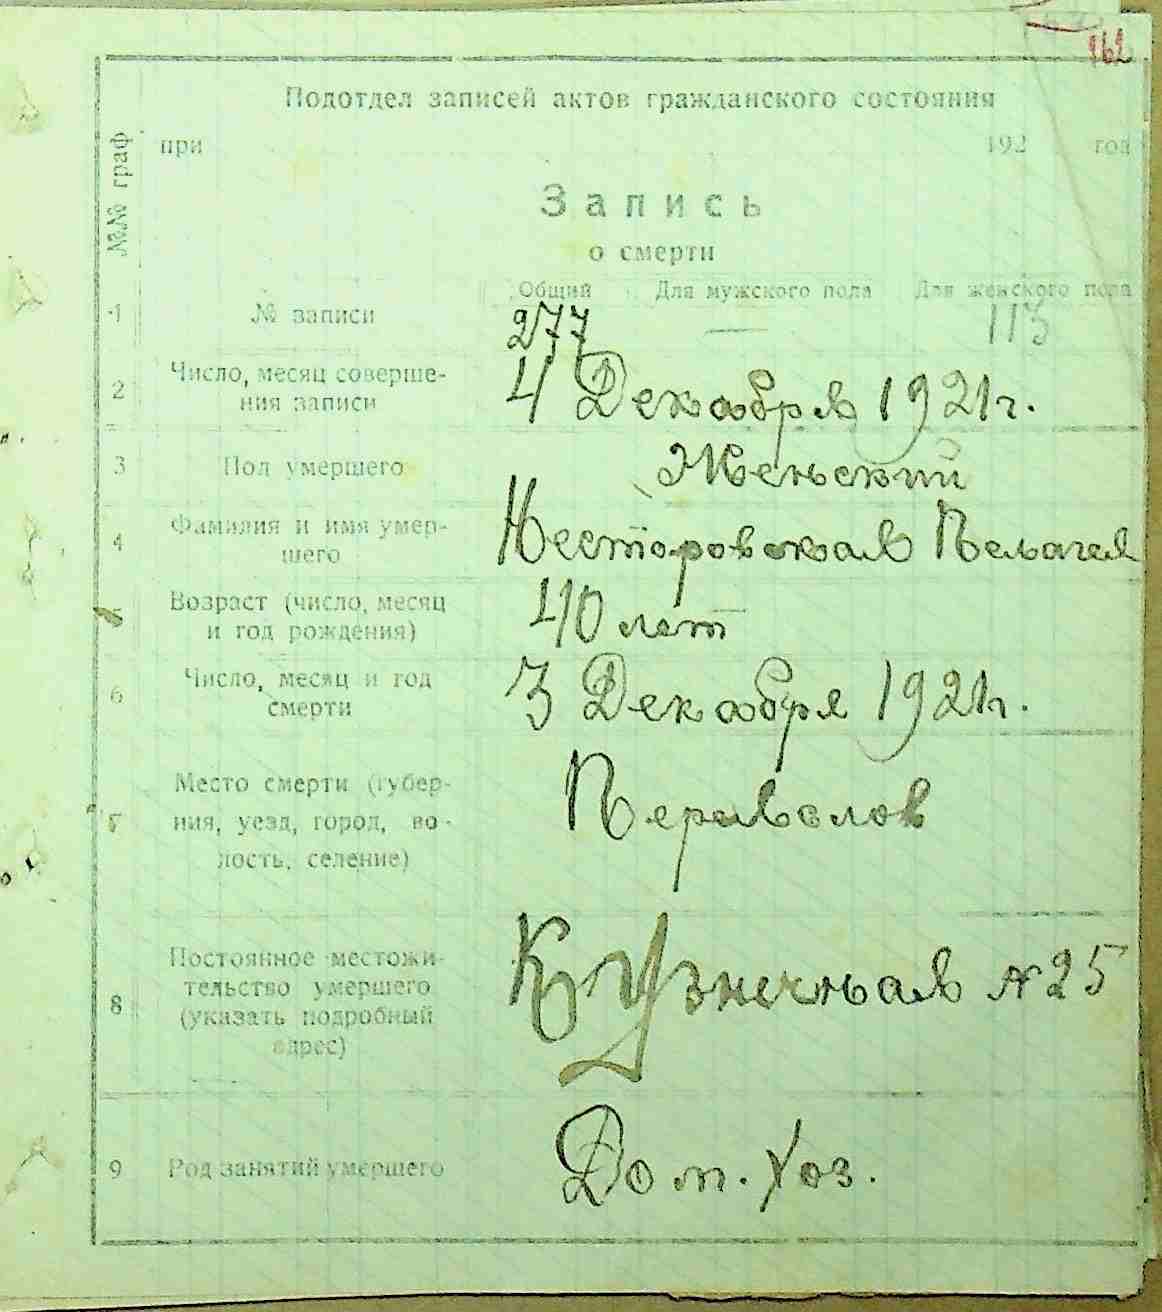 162
Подотдел записей актов гражданского состояния
при 192 год
№№ граф
Запись
о смерти
Общий Для мужского пола Для женского пола
1 № записи 277 — 113
2 Число, месяц соверше-
ния записи 4 Декабря 1921г.
3 Пол умершего Женский
4 Фамилия и имя умер-
шего Несторовская Пелагея
5 Возраст (число, месяц
и год рождения) 40 лет
6 Число, месяц и год
смерти 3 Декабря 1921г.
7 Место смерти (губер-
ния, уезд, город, во-
лость, селение)
8 Постоянное местожи-
тельство умершего
(указать подробный
адрес) Кузнечная № 25
9 Род занятий умершего Дом. Хоз.